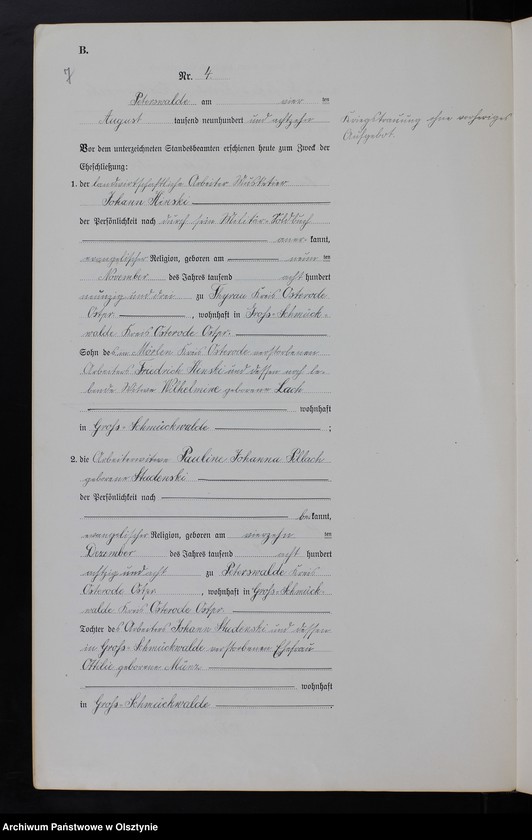 B.
7
Nr. 4.
Peterswalde am vier ten
August tausend neunhundert und achtzehn
Kriegstrauung ohne vorheriges
Aufgebot.
Vor dem unterzeichneten Standesbeamten erschienen heute zum Zweck der
Eheschließung:
1. der landwirtschaftliche Arbeiter Musketier
Johann
der Persönlichkeit nach durch sein Militär-Soldbuch
aner kannt,
evangelischer Religion, geboren am neun ten
November des Jahres tausend acht hundert
neunzig und drei zu Thyrau Kreis Osterode
Ostpr. , wohnhaft in Groß-Schmück-
walde Kreis Osterode Ostpr.
Sohn des in Mörlen Kreis Osterode verstorbenen
Arbeiters Friedrich und dessen noch le-
bende Witwe Wilhelmine geborene Lach
wohnhaft
in Groß-Schmückwalde ;
2. die Arbeiterwitwe Pauline Johanna
geborene Studenski
der Persönlichkeit nach
be kannt,
evangelischer Religion, geboren am vierzehn ten
Dezember des Jahres tausend acht hundert
achtzig und acht zu Peterswalde Kreis
Osterode Ostpr. , wohnhaft in Groß-Schmück-
walde Kreis Osterode Ostpr.
Tochter des Arbeiters Johann Studenski und dessen
in Groß-Schmückwalde verstorbenen Ehefrau
Ottilie geborene Münz
wohnhaft
in Groß-Schmückwalde .
Archiwum Państwowe w Olsztynie